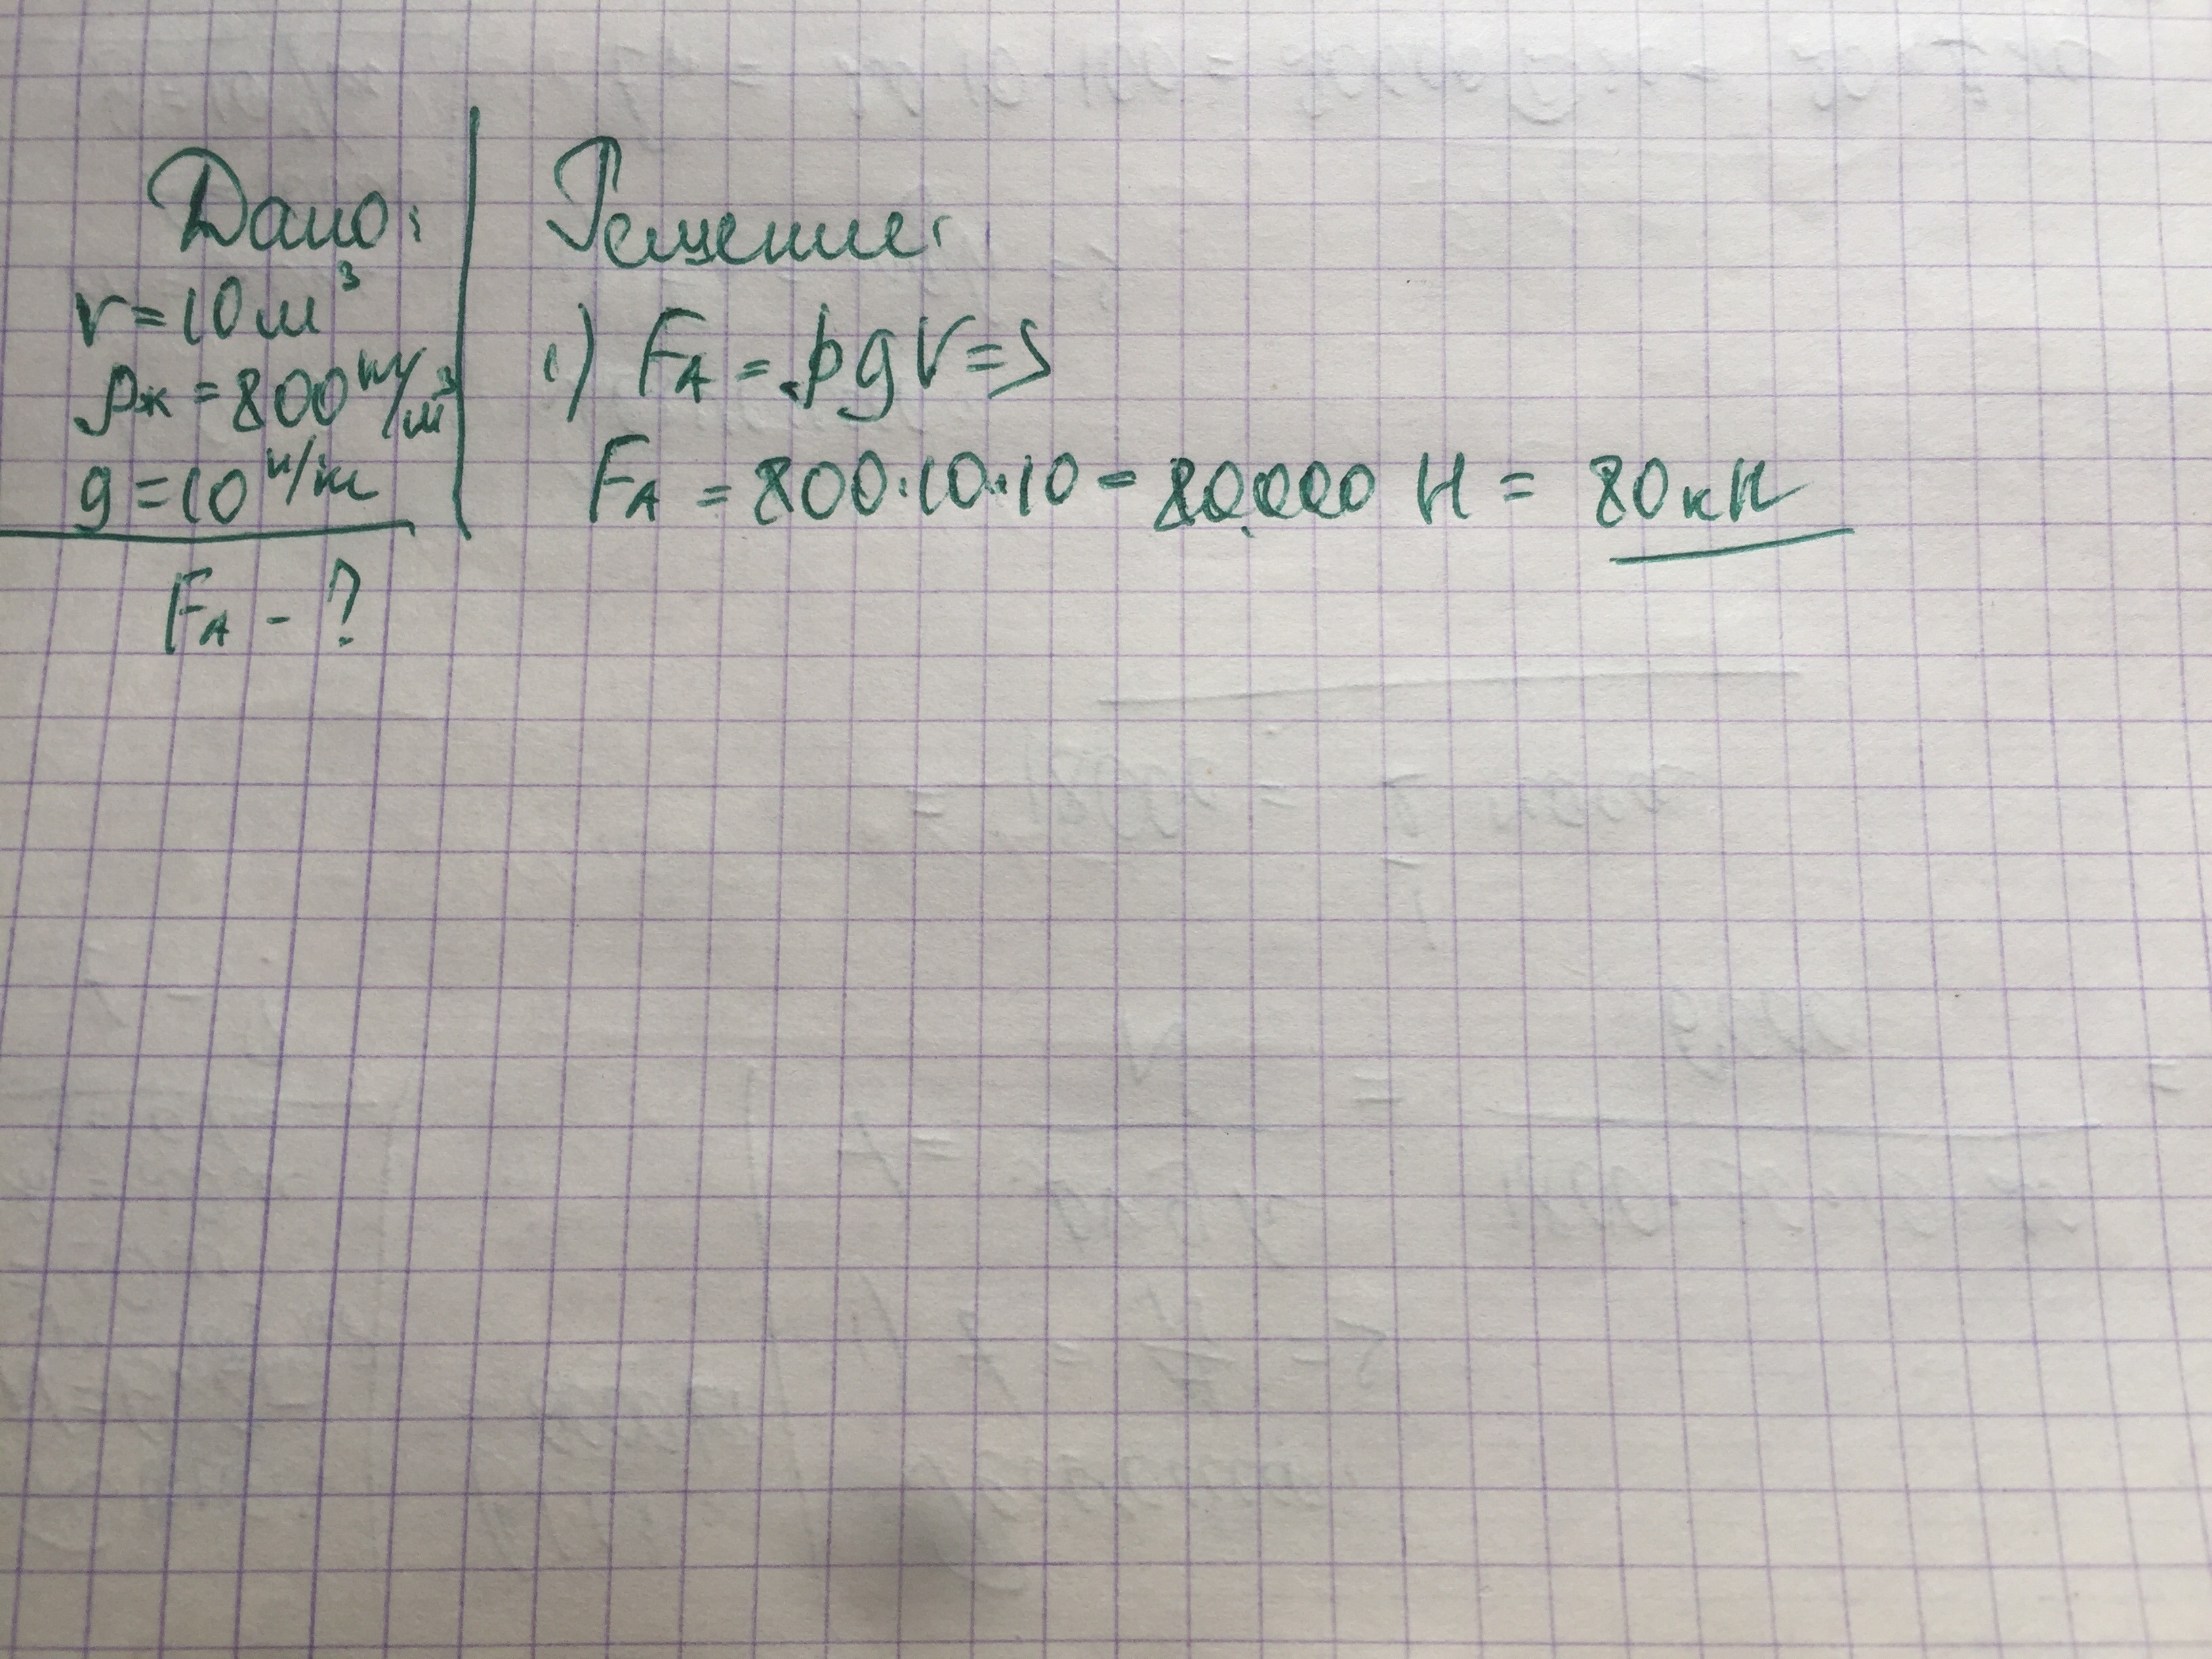 Дано:
V = 10 м³
ρж = 800 кг/м³
g = 10 н/кг
FА - ?
Решение:
1) FА = ρgV =>
FА = 800·10·10 = 80000 Н = 80 кН